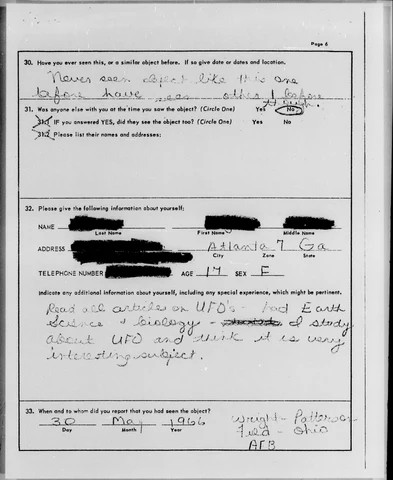 Page 6
30. Have you ever seen this, or a similar object before. If so give date or dates and location.
Never seen object like this one
before have seen other before
though.
31. Was anyone else with you at the time you saw the object? (Circle One) Yes No
31.1 IF you answered YES, did they see the object too? (Circle One) Yes No
31.2 Please list their names and addresses:
32. Please give the following information about yourself:
NAME
Last Name First Name Middle Name
ADDRESS Atlanta 7 Ga
City Zone State
TELEPHONE NUMBER AGE 17 SEX F
Indicate any additional information about yourself, including any special experience, which might be pertinent.
Read all articles on UFO's - had Earth
Science + biology - I study
about UFO and think it is very
interesting subject.
33. When and to whom did you report that you had seen the object?
30 May 1966
Day Month Year
Wright-Patterson
Field - Ohio
AFB